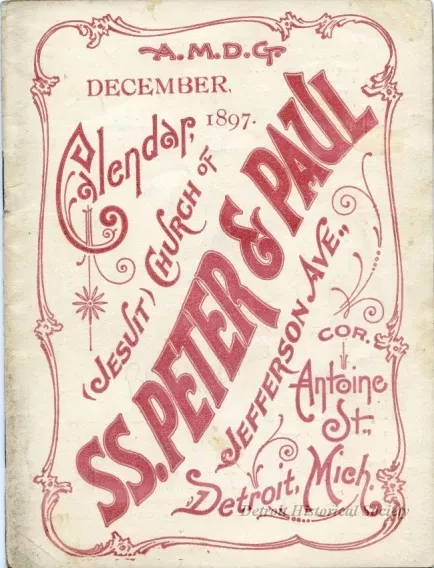 A.M.D.G.
DECEMBER,
1897.
Calendar,
(JESUIT) CHURCH OF
SS. PETER & PAUL
JEFFERSON AVE.,
COR.
Antoine
St.,
Detroit, Mich.
Detroit Historical Society